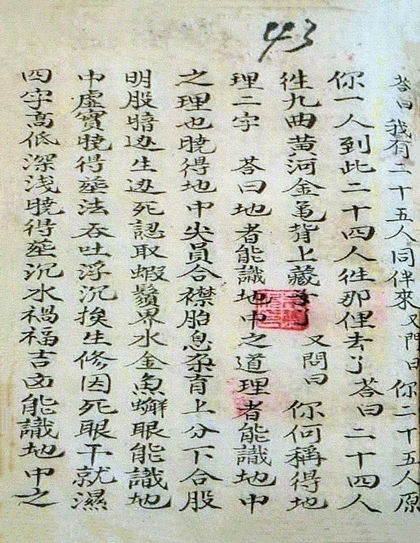 43
答曰我有二十五人同伴來又門曰你二十五人原
你一人到此二十四人徃那俚去了 答曰二十四人
徃九曲黄河金亀背上藏 又問曰 你何稱得地
理二字 答曰地者能識地中之道理者能識地中
之理也曉得地中尖員合襟胎息孕育上分下合股
明股暗边生边死認取蝦鬚界水金魚蠏眼能識地
中虛實曉得塟法吞吐浮沉挨生修因死眼干就濕
四字高低深浅曉得塟沉水禍福吉凶能識地中之